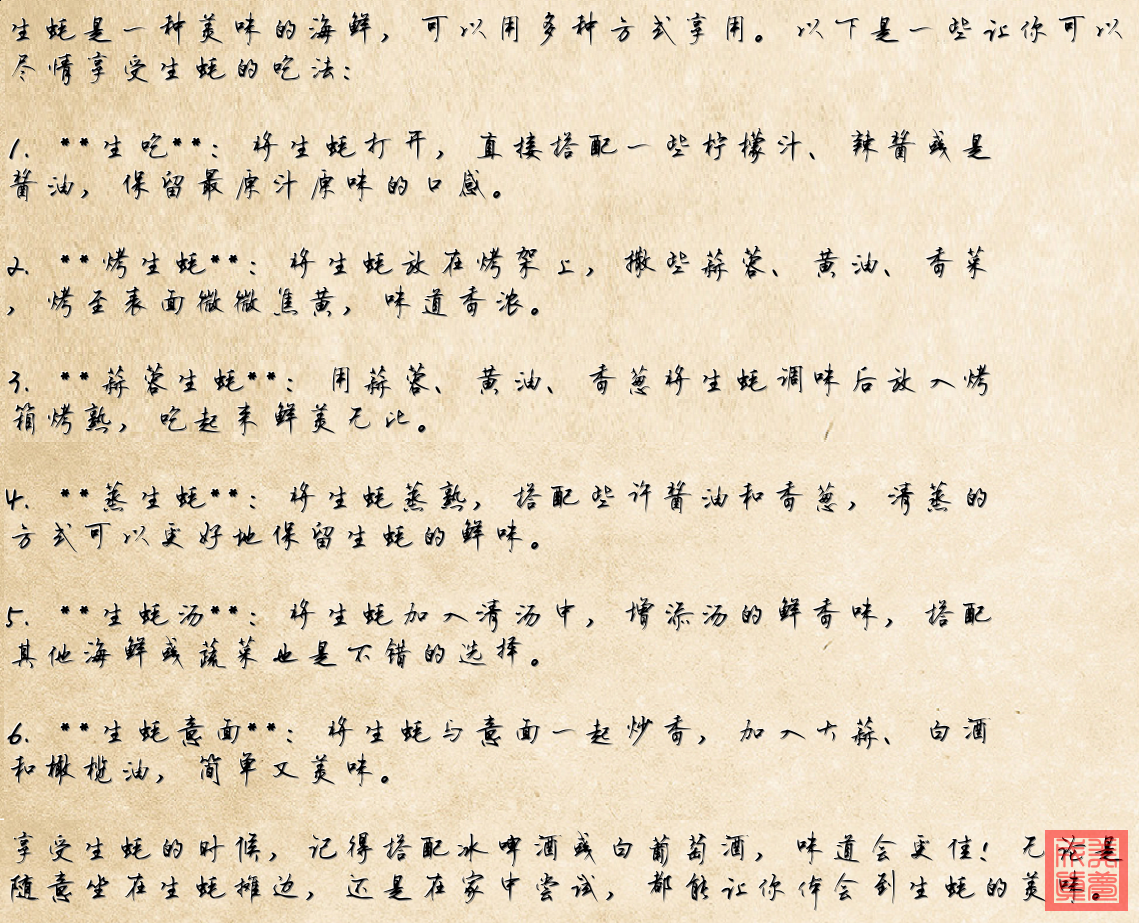 生蚝是一种美味的海鲜，可以用多种方式享用。以下是一些让你可以
尽情享受生蚝的吃法：
1. **生吃**：将生蚝打开，直接搭配一些柠檬汁、辣酱或是
酱油，保留最原汁原味的口感。
2. **烤生蚝**：将生蚝放在烤架上，撒些蒜蓉、黄油、香菜
，烤至表面微微焦黄，味道香浓。
3. **蒜蓉生蚝**：用蒜蓉、黄油、香葱将生蚝调味后放入烤
箱烤熟，吃起来鲜美无比。
4. **蒸生蚝**：将生蚝蒸熟，搭配些许酱油和香葱，清蒸的
方式可以更好地保留生蚝的鲜味。
5. **生蚝汤**：将生蚝加入清汤中，增添汤的鲜香味，搭配
其他海鲜或蔬菜也是不错的选择。
6. **生蚝意面**：将生蚝与意面一起炒香，加入大蒜、白酒
和橄榄油，简单又美味。
享受生蚝的时候，记得搭配冰啤酒或白葡萄酒，味道会更佳！无论是
随意坐在生蚝摊边，还是在家中尝试，都能让你体会到生蚝的美味。